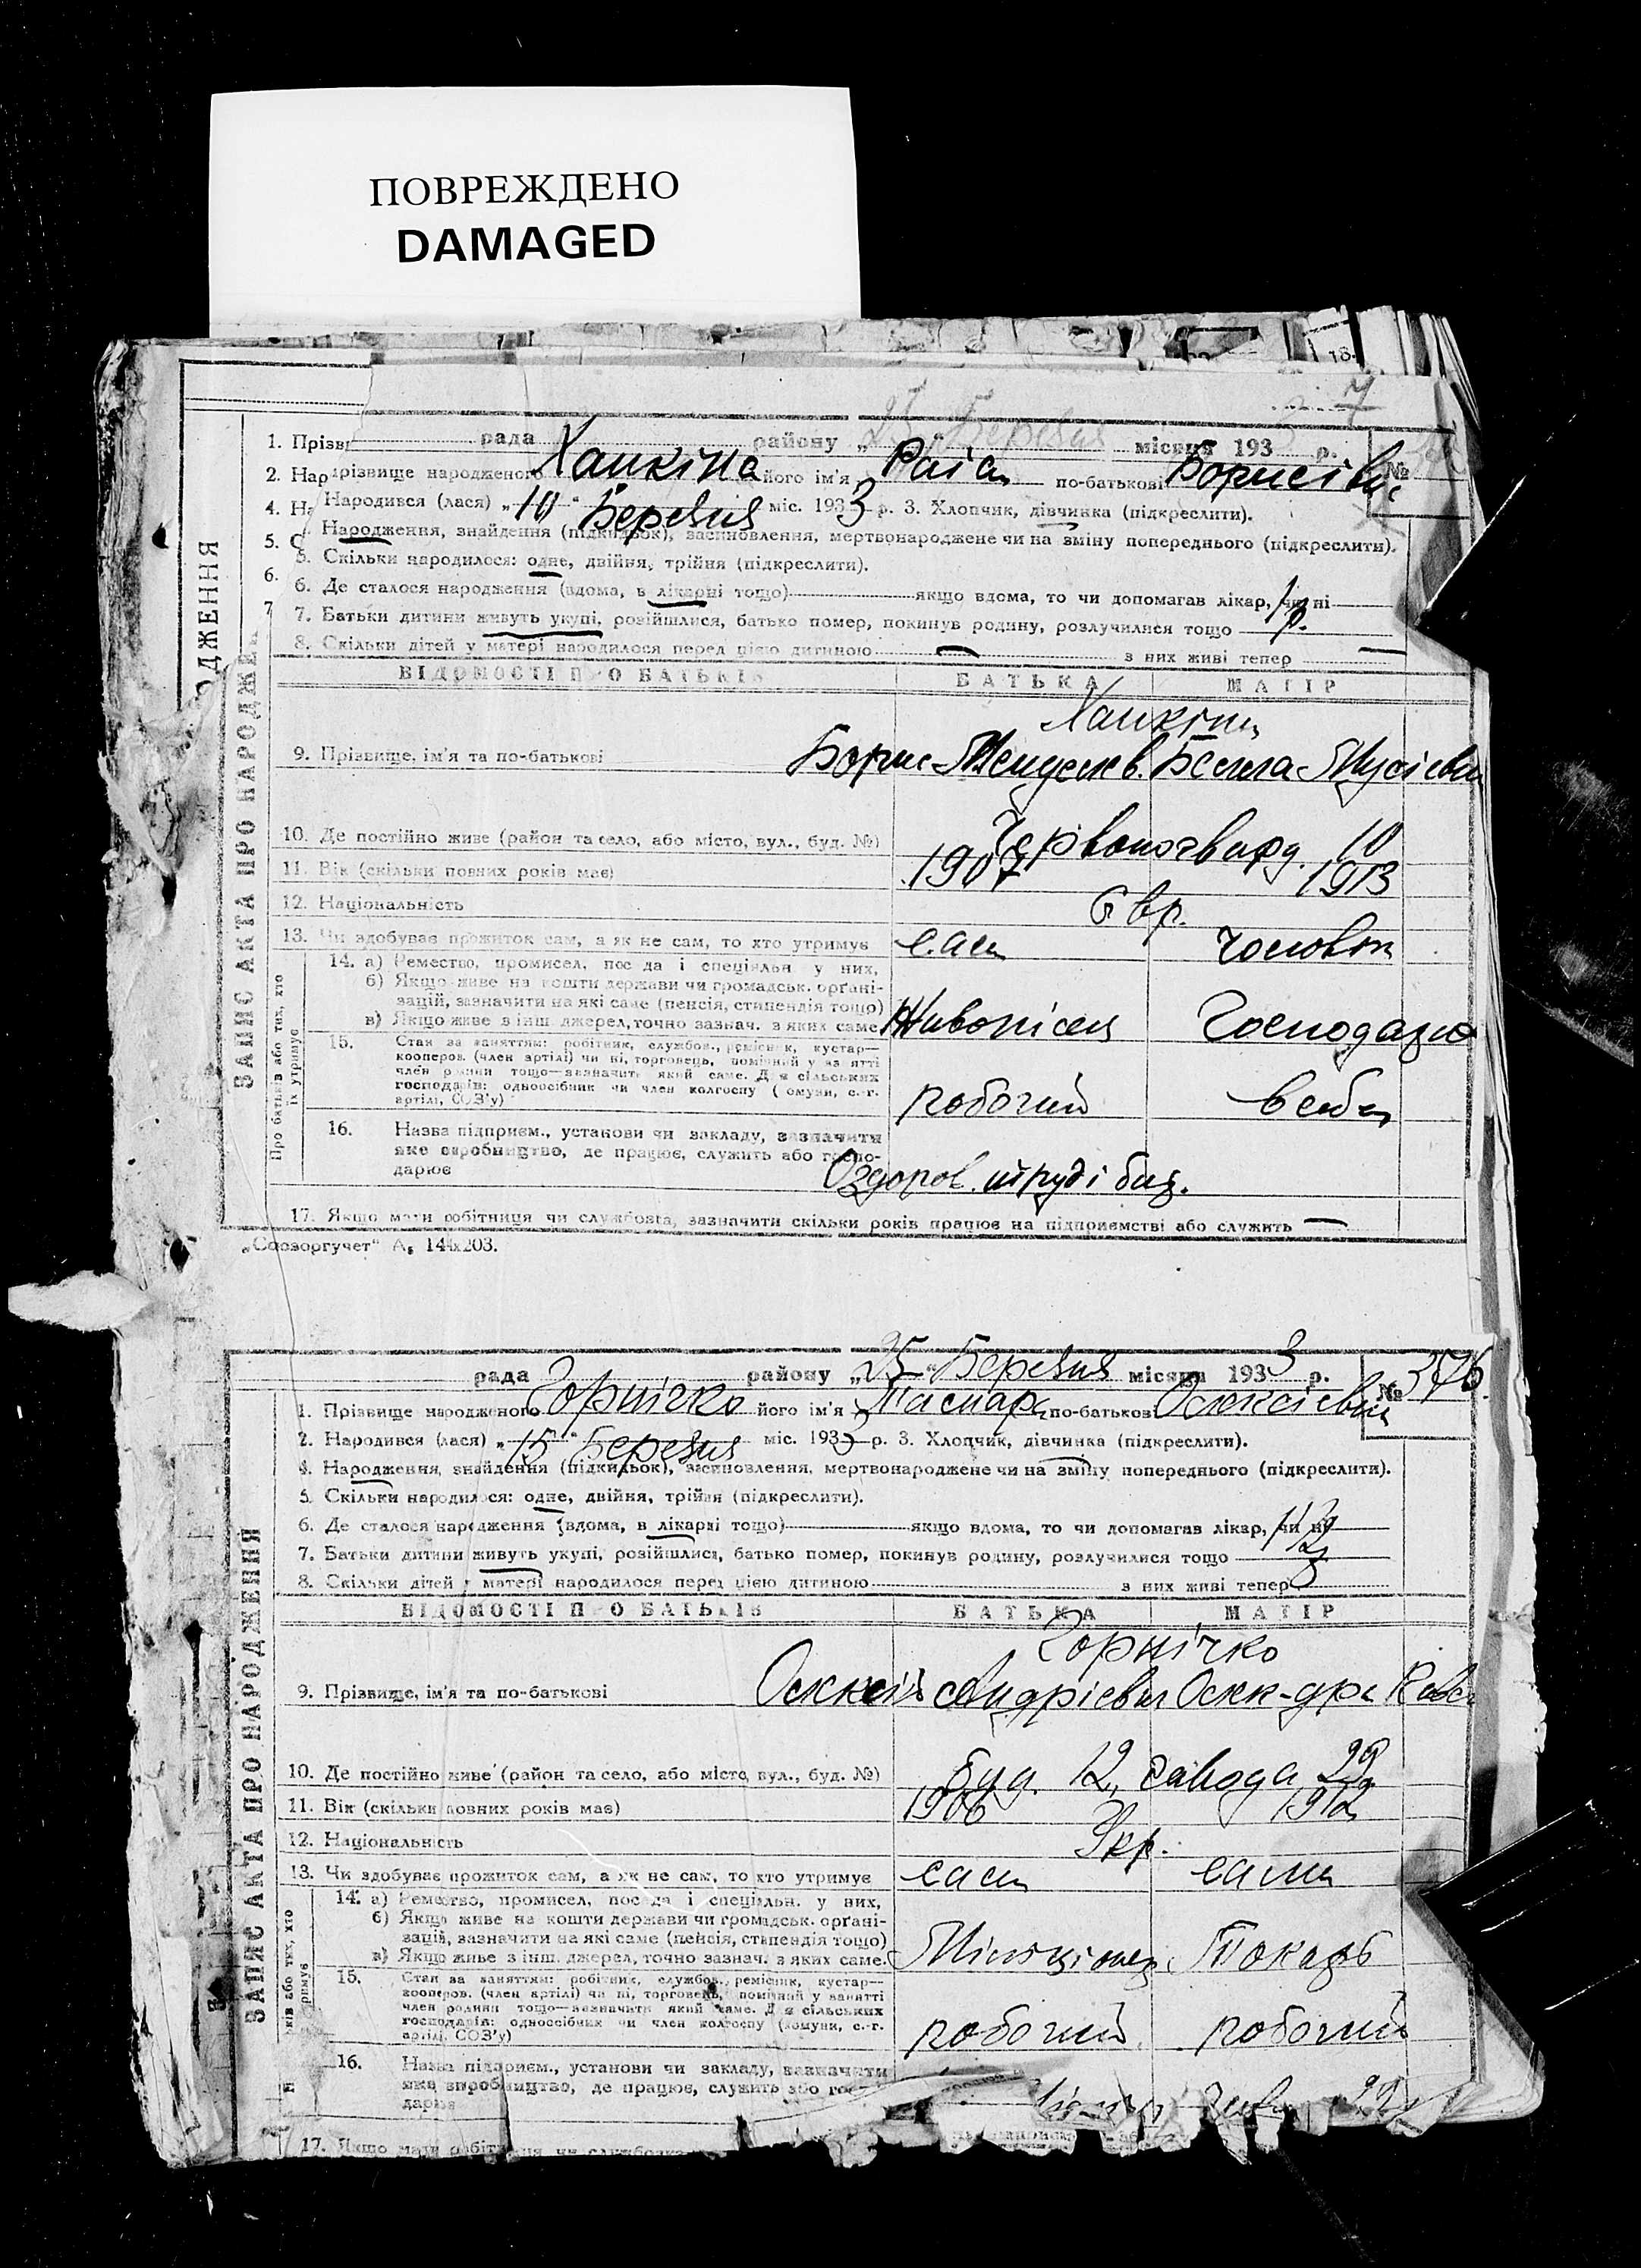 ПОВРЕЖДЕНО
DAMAGED
18.
7
рада району „25 Березня місяця 193 р.
№
1. Прізви
2. Нар
4. На
5. С
6.
7
різвище народженого Ханкіна його ім'я Раіса по-батькові Борисівн
Народився (лася) „10" Березня міс. 1933 р. 3. Хлопчик, дівчинка (підкреслити).
Народження, знайдення (підкидьок), засиновлення, мертвонароджене чи на зміну попереднього (підкреслити).
5. Скільки народилося: одне, двійня, трійня (підкреслити).
6. Де сталося народження (вдома, в лікарні тощо) якщо вдома, то чи допомагав лікар, чи ні
7. Батьки дитини живуть укупі, розійшлися, батько помер, покинув родину, розлучилися тощо 1 р.
8. Скільки дітей у матері народилося перед цією дитиною — з них живі тепер —
ОДЖЕННЯ
ЗАПИС АКТА ПРО НАРОДЖЕ
ВІДОМОСТІ ПРО БАТЬКІВ БАТЬКА МАТІР
9. Прізвище, ім'я та по-батькові
Борис Бейла Мусієвн
10. Де постійно живе (район та село, або місто, вул., буд. №) Червоногвард. 10
11. Вік (скільки повних років має) 1907 1913
12. Національність Євр.
13. Чи здобуває прожиток сам, а як не сам, то хто утримує сам чоловік
Про батьків або тих, хто їх утримує
14. а) Ремество, промисел, посада і спеціяльн. у них,
б) Якщо живе на кошти держави чи громадськ. органі-
зацій, зазначити на які саме (пенсія, стипендія тощо)
в) Якщо живе з інш. джерел, точно зазнач. з яких саме Живопісец Господарю
15. Стан за заняттям: робітник, службов., ремісник, кустар—
кооперов. (член артілі) чи ні, торговець, помічний у занятті
член родини тощо—зазначити який саме. Для сільських
господарів: одноосібник чи член колгоспу (комуни, с.-г.
артілі, СОЗ'у) робочий
16. Назва підприєм., установи чи закладу, зазначити
яке виробництво, де працює, служить або госпо-
дарює Оздоров. труд і
17. Якщо мати робітниця чи службовка, зазначити скільки років працює на підприємстві або служить —
„Союзоргучет" А₅ 144х203.
рада району „25" Березня місяця 1933 р.
№ 376
1. Прізвище народженого Горнічко його ім'я Тамара по-батькові Олексієвн
2. Народився (лася) „15" Березня міс. 1933 р. 3. Хлопчик, дівчинка (підкреслити).
4. Народження, знайдення (підкидьок), засиновлення, мертвонароджене чи на зміну попереднього (підкреслити).
5. Скільки народилося: одне, двійня, трійня (підкреслити).
6. Де сталося народження (вдома, в лікарні тощо) якщо вдома, то чи допомагав лікар, чи ні
7. Батьки дитини живуть укупі, розійшлися, батько помер, покинув родину, розлучилися тощо
8. Скільки дітей у матері народилося перед цією дитиною з них живі тепер
ЗАПИС АКТА ПРО НАРОДЖЕННЯ
ВІДОМОСТІ ПРО БАТЬКІВ БАТЬКА МАТІР
Горнічко
9. Прізвище, ім'я та по-батькові Олексій Андрієвич Олек-дра
10. Де постійно живе (район та село, або місто, вул., буд. №) буд. 12, завода 29
11. Вік (скільки повних років має) 1906 1912
12. Національність Укр.
13. Чи здобуває прожиток сам, а як не сам, то хто утримує сам сама
14. а) Ремество, промисел, посада і спеціяльн. у них,
б) Якщо живе на кошти держави чи громадськ. органі-
зацій, зазначити на які саме (пенсія, стипендія тощо)
в) Якщо живе з інш. джерел, точно зазнач. з яких саме. Міліціонер Токарь
15. Стан за заняттям: робітник, службов., ремісник, кустар—
кооперов. (член артілі) чи ні, торговець, помічний у занятті
член родини тощо—зазначити який саме. Для сільських
господарів: одноосібник чи член колгоспу (комуни, с.-г.
артілі, СОЗ'у) робочий робочий
16. Назва підприєм., установи чи закладу, зазначити
яке виробництво, де працює, служить або гос
дарює 29
17. Якщо мати робітниця чи службовка